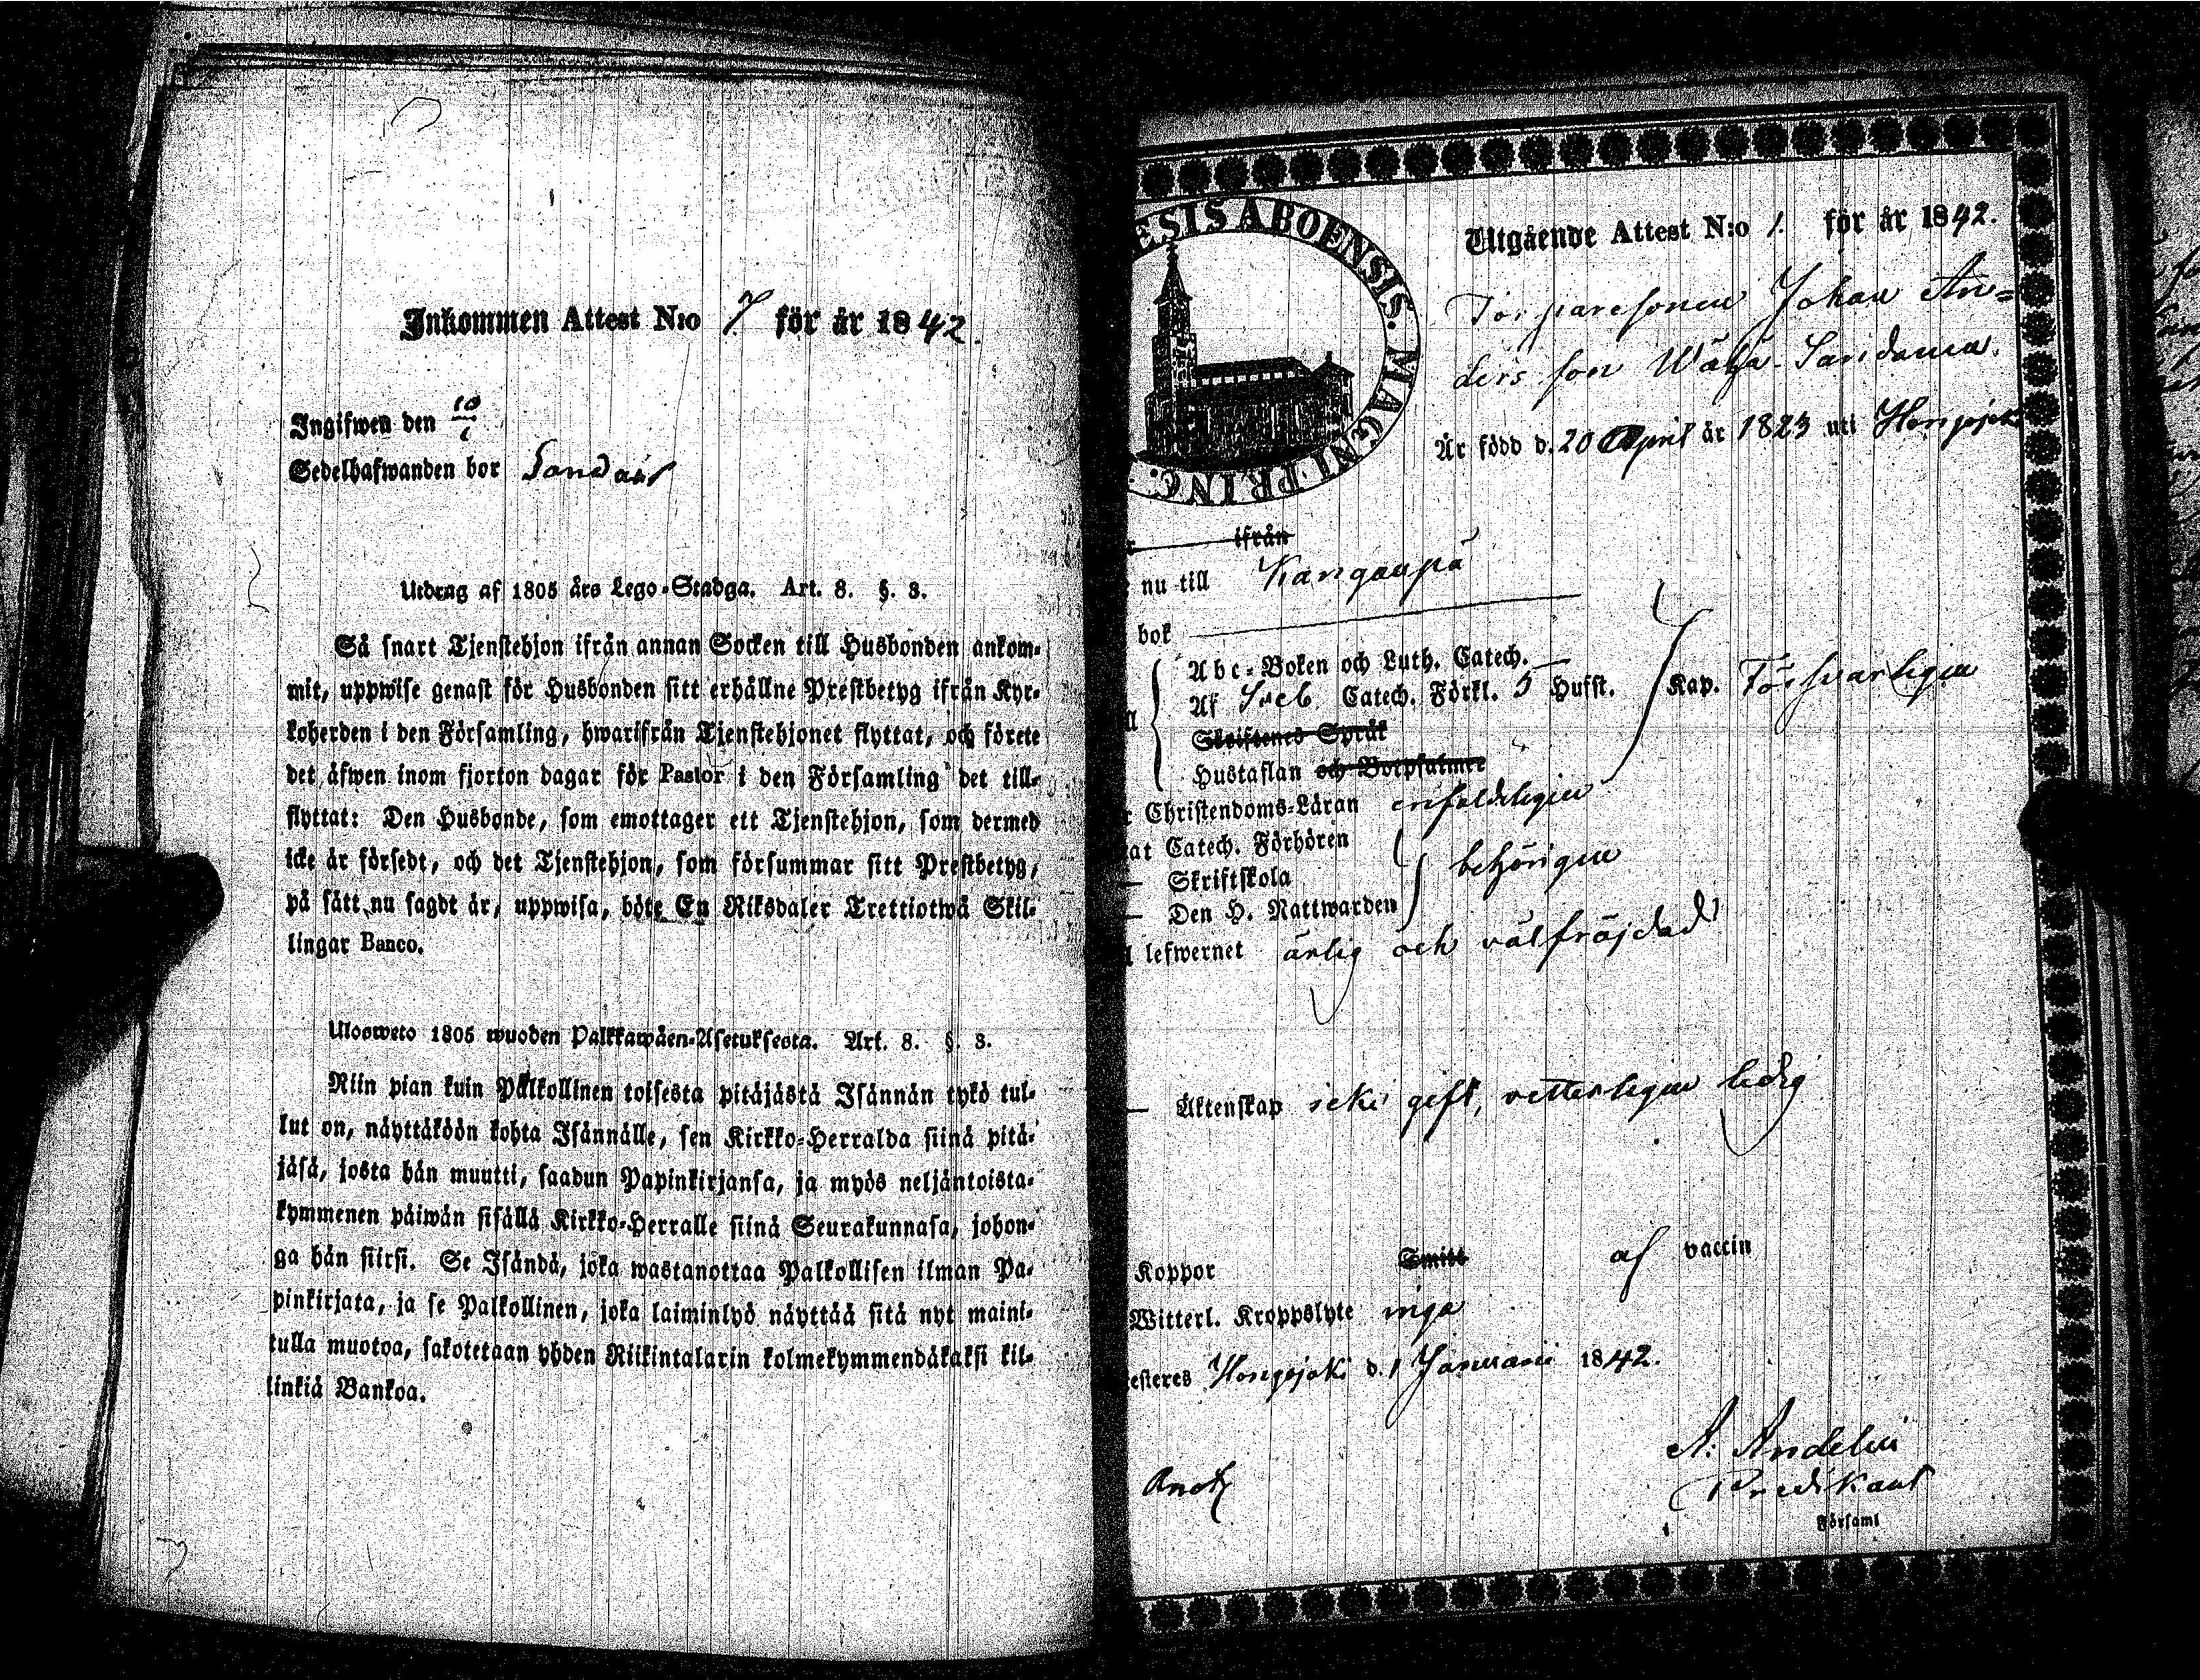 Inkommen Attest N:o 7. för år 1842.
Ingifwen den 10/1
Sedelhafwanden bor
Utdrag af 1805 års Lego-Stadga. Art. 8. §. 3.
Så snart Tjenstehjon ifrån annan Socken till Husbonden ankom-
mit, uppwise genast för Husbonden sitt erhållne Prestbetyg ifrån Kyr-
koherden i den Församling, hwarifrån Tjenstehjonet flyttat, och förete
det äfwen inom fjorton dagar för Pastor i den Församling det till-
flyttat: Den Husbonde, som emottager ett Tjenstehjon, som dermed
icke är försedt, och det Tjenstehjon, som försummar sitt Prestbetyg,
på sätt nu sagdt är, uppwisa, böte En Riksdaler Trettiotwå Skil-
lingar Banco.
Ulosweto 1805 wuoden Palkkawäen-Asetuksesta. Art. 8. §. 3.
Niin pian kuin Palkollinen toisesta pitäjästä Isännän tykö tul-
lut on, näyttäköön kohta Isännälle, sen Kirkko-Herralda siinä pitä-
jäsä, josta hän muutti, saadun Papinkirjansa, ja myös neljäntoista-
kymmenen päiwän sisällä Kirkko-Herralle siinä Seurakunnasa, johon-
ga hän siirsi. Se Isändä, joka wastanottaa Palkollisen ilman Pa-
pinkirjata, ja se Palkollinen, joka laiminlyö näyttää sitä nyt maini-
tulla muotoa, sakotetaan yhden Riikintalarin kolmekymmendäkaksi kil-
linkiä Bankoa.
ESIS ABOENSIS. MAGNI PRINC.
Utgående Attest N:o 1. för år 1842.
Torparesonen Johan An=
ders son
Är född d. 20 April år 1823 uti Hongojoki
ifrån
nu till Kangaspä
bok
Abc-Boken och Luth. Catech. —
Af Sveb. Catech. Förkl. 5 Hufst. Kap. Försvarligen
Skriftenes Språk
Hustaflan och Botpsalmer
Christendoms-Läran enfaldeligen
at Catech. Förhören
— Skriftskola behörigen
— Den H. Nattwarden
lefwernet ärlig och välfräjdad
— Äktenskap icke gift, vetterligen ledig
Koppor Smitt af vaccin
Witterl. Kroppslyte inga
esteres Hongojoki d. 1 Januari 1842.
A: Andelin
Predikant
Församl